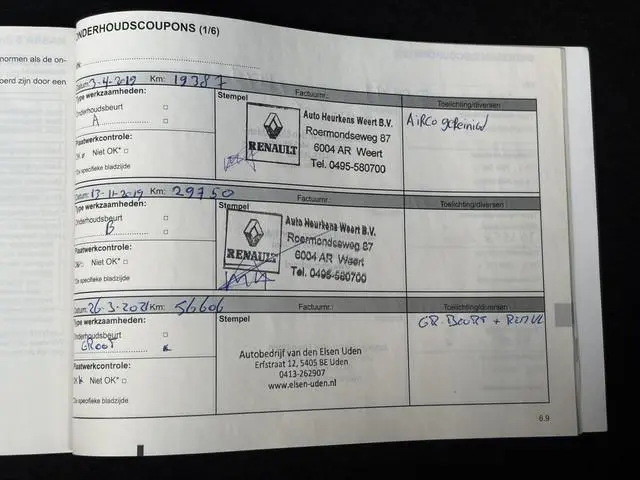 normen als de on-
oerd zijn door een
ONDERHOUDSCOUPONS (1/6)
Datum: 3-4-2019 Km: 19387
Type werkzaamheden:
Onderhoudsbeurt
A
Plaatwerkcontrole:
OK Niet OK*
*Zie specifieke bladzijde
Stempel
Factuurnr.:
Toelichting/diversen
RENAULT
Auto Heurkens Weert B.V.
Roermondseweg 87
6004 AR Weert
Tel. 0495-580700
AIRCO gereinigd
Datum: 13-11-2019 Km: 29750
Type werkzaamheden:
Onderhoudsbeurt
B
Plaatwerkcontrole:
OK* Niet OK*
*Zie specifieke bladzijde
Stempel
Factuurnr.:
Toelichting/diversen
RENAULT
Auto Heurkens Weert B.V.
Roermondseweg 87
6004 AR Weert
Tel. 0495-580700
Datum: 26-3-2021 Km: 56606
Type werkzaamheden:
Onderhoudsbeurt
GROOT
Plaatwerkcontrole:
OK Niet OK*
*Zie specifieke bladzijde
Stempel
Factuurnr.:
Toelichting/diversen
Autobedrijf van den Elsen Uden
Erfstraat 12, 5405 BE Uden
0413-262907
www.elsen-uden.nl
GR. BEURT +
6.9